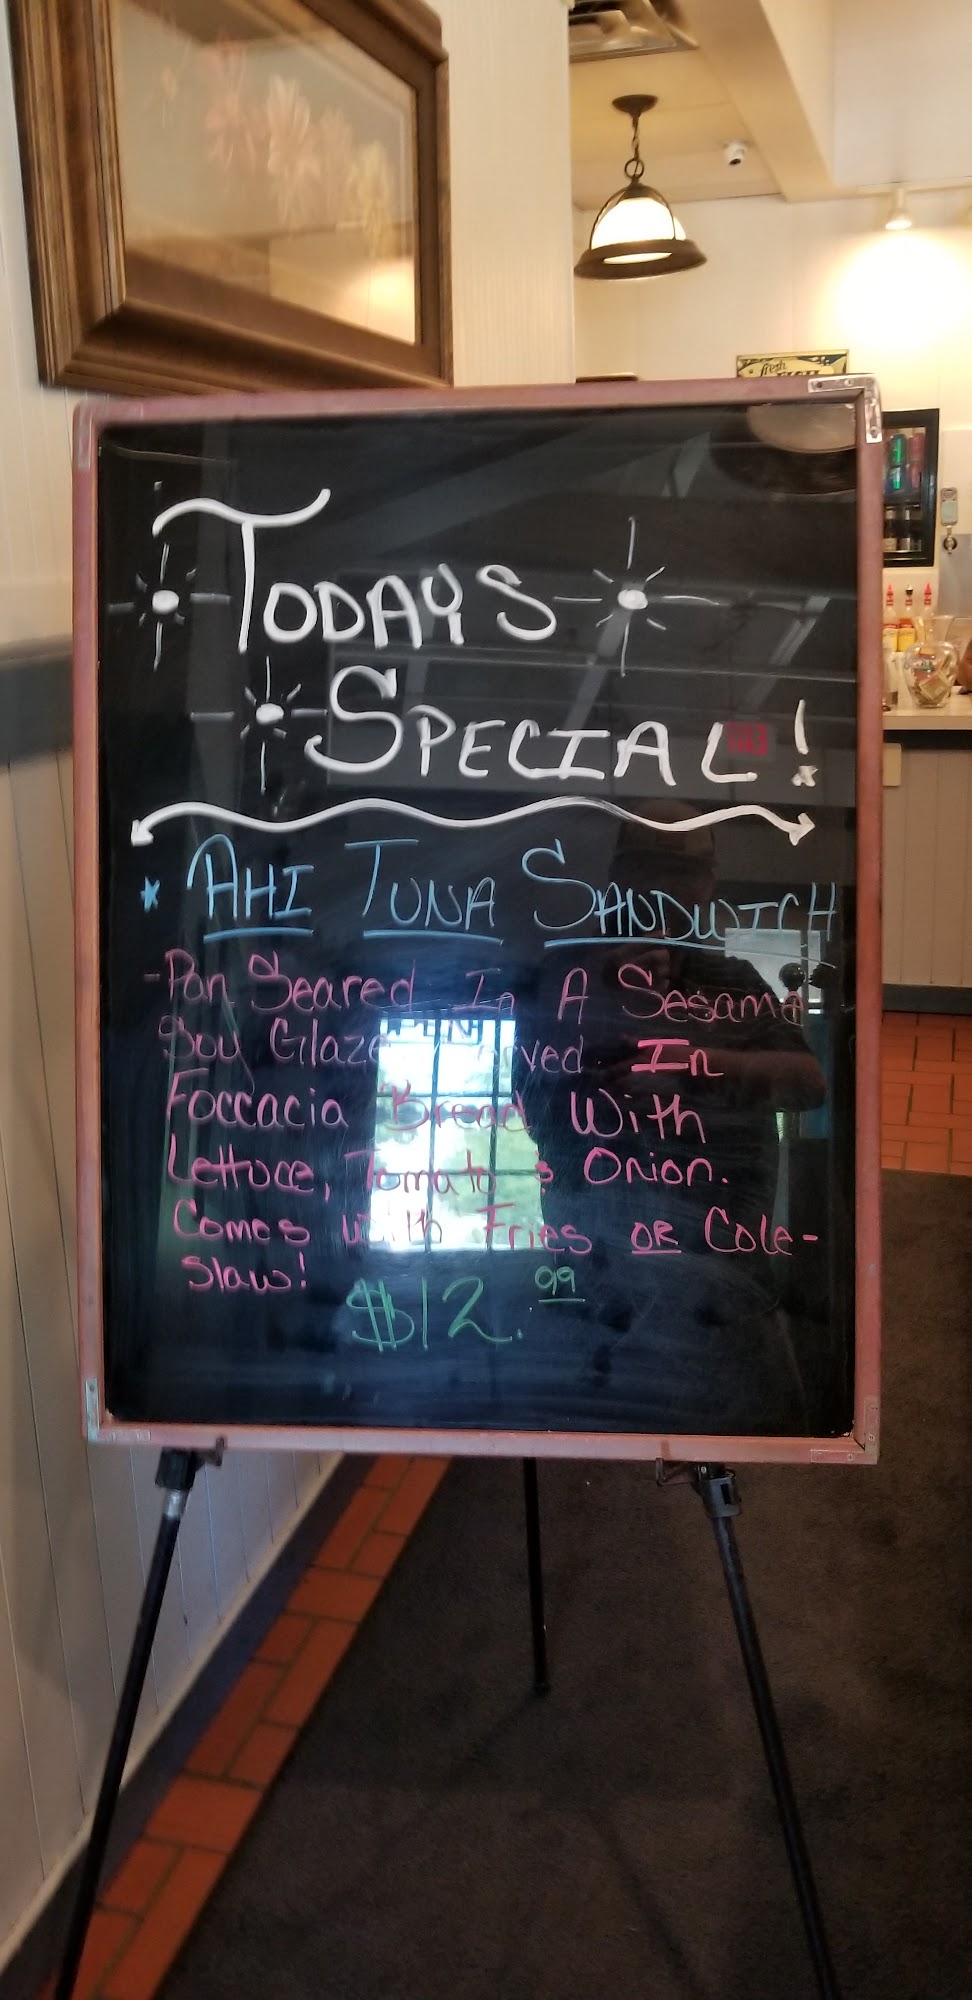 fresh
FISH
TODAYS
SPECIAL!
* AHI TUNA SANDWICH
-Pan Seared In A Sesame
Soy Glaze Served In
Foccacia Bread With
Lettuce, Tomato & Onion.
Comes with Fries OR Cole-
slaw!
$12.99